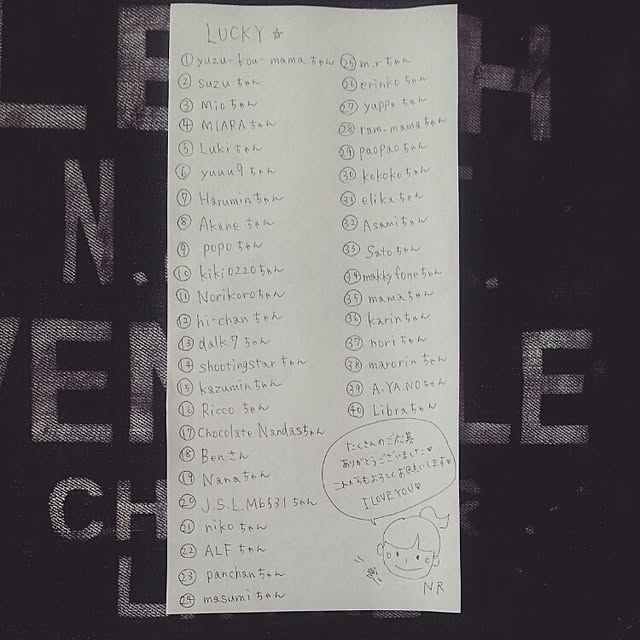 LUCKY☆
① yuzu-kou-mamaちゃん
② suzuちゃん
③ Mioちゃん
④ MIARAちゃん
⑤ Lukiちゃん
⑥ yuuu9ちゃん
⑦ Haruminちゃん
⑧ Akaneちゃん
⑨ popoちゃん
⑩ kiki0220ちゃん
⑪ Norikoroちゃん
⑫ hi-chanちゃん
⑬ dalk7ちゃん
⑭ shootingstarちゃん
⑮ kazuminちゃん
⑯ Riccoちゃん
⑰ Chocolate Nandasちゃん
⑱ Benさん
⑲ Nanaちゃん
⑳ J.S.L.Mb531ちゃん
㉑ nikoちゃん
㉒ ALFちゃん
㉓ panchanちゃん
㉔ masumiちゃん
㉕ m.rちゃん
㉖ erinkoちゃん
㉗ yuppeちゃん
㉘ ram_mamaちゃん
㉙ paopaoちゃん
㉚ kokokoちゃん
㉛ elikaちゃん
㉜ Asamiちゃん
㉝ Satoちゃん
㉞ makkyfoneちゃん
㉟ mamaちゃん
㊱ karinちゃん
㊲ noriちゃん
㊳ marorinちゃん
㊴ A.YA.NOちゃん
㊵ Libraちゃん
たくさんのご応募
ありがとうございました♥
これからもよろしくお願いします♥
I LOVE YOU♥
NR